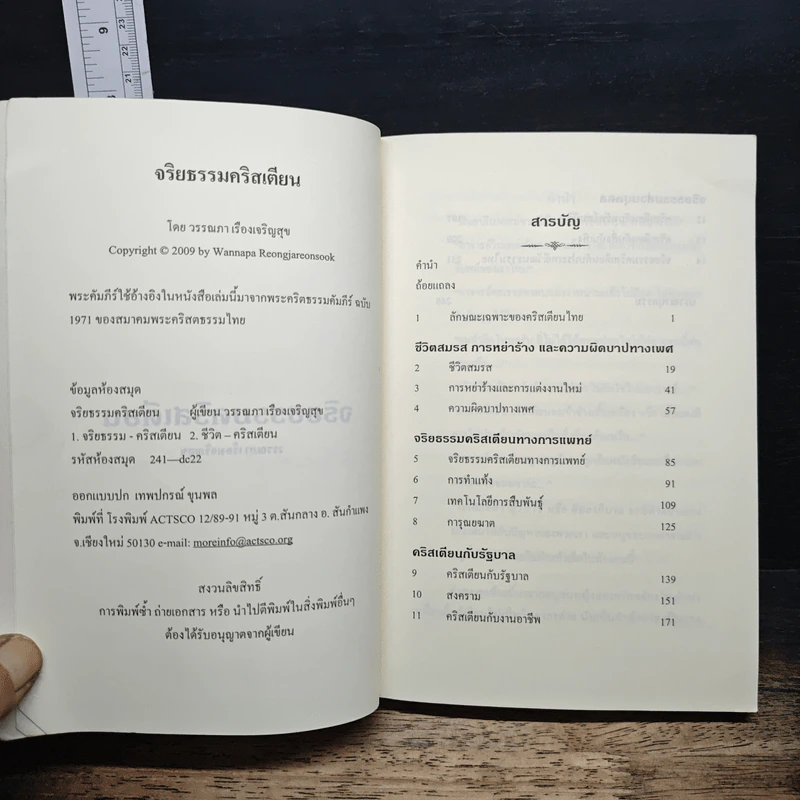 จริยธรรมคริสเตียน
โดย วรรณภา เรืองเจริญสุข
Copyright © 2009 by Wannapa Reongjareonsook
พระคัมภีร์ใช้อ้างอิงในหนังสือเล่มนี้มาจากพระคริตธรรมคัมภีร์ ฉบับ
1971 ของสมาคมพระคริสตธรรมไทย
ข้อมูลห้องสมุด
จริยธรรมคริสเตียน ผู้เขียน วรรณภา เรืองเจริญสุข
1. จริยธรรม - คริสเตียน 2. ชีวิต – คริสเตียน
รหัสห้องสมุด 241—dc22
ออกแบบปก เทพปกรณ์ ขุนพล
พิมพ์ที่ โรงพิมพ์ ACTSCO 12/89-91 หมู่ 3 ต.สันกลาง อ. สันกำแพง
จ.เชียงใหม่ 50130 e-mail: moreinfo@actsco.org
สงวนลิขสิทธิ์
การพิมพ์ซ้ำ ถ่ายเอกสาร หรือ นำไปตีพิมพ์ในสิ่งพิมพ์อื่นๆ
ต้องได้รับอนุญาตจากผู้เขียน
สารบัญ
คำนำ
ถ้อยแถลง
1 ลักษณะเฉพาะของคริสเตียนไทย 1
ชีวิตสมรส การหย่าร้าง และความผิดบาปทางเพศ
2 ชีวิตสมรส 19
3 การหย่าร้างและการแต่งงานใหม่ 41
4 ความผิดบาปทางเพศ 57
จริยธรรมคริสเตียนทางการแพทย์
5 จริยธรรมคริสเตียนทางการแพทย์ 85
6 การทำแท้ง 91
7 เทคโนโลยีการสืบพันธุ์ 109
8 การุณยฆาต 125
คริสเตียนกับรัฐบาล
9 คริสเตียนกับรัฐบาล 139
10 สงคราม 151
11 คริสเตียนกับงานอาชีพ 171